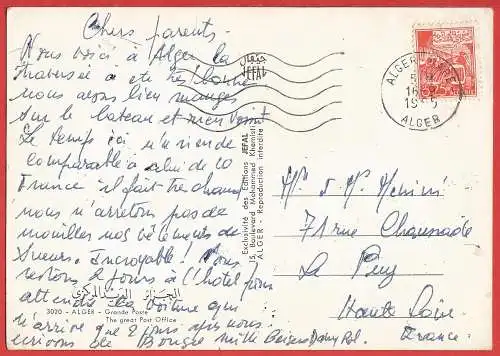 Chers parents.
Nous voici à Alger la
traversée a été très bonne
nous avons bien mangés
sur le bateau et rien vomit
Le temps ici n'a rien de
comparable à celui de la
France il fait très chaud
nous n'arretons pas de
mouilles nos vêtements de
sueurs. Incroyable! Nous
restons 2 jours à l'hotel pour
attendre la voiture qui
n'arrive que 2 jours après nous.
écrirons de Bougie Mille Baisers
3020 - ALGER - Grande Poste
The great Post Office
Exclusivité des Editions JEFAL
15, Boulevard Mohammed Khemisti
ALGER - Reproduction interdite
جيفال
JEFAL
ALGER
16
ALGER
Mr & Mme
71 rue Chaussade
Le Puy
Haute Loire
France.